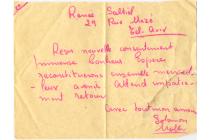 Renée Saltiel
29 Rue Mazé
Tel. Aviv
Reçu nouvelle consentement
Immense bonheur Espérer
reconstituerons ensemble merveil-
leux avenir Attend impatie-
ment retour
avec tout mon amour
Salomon